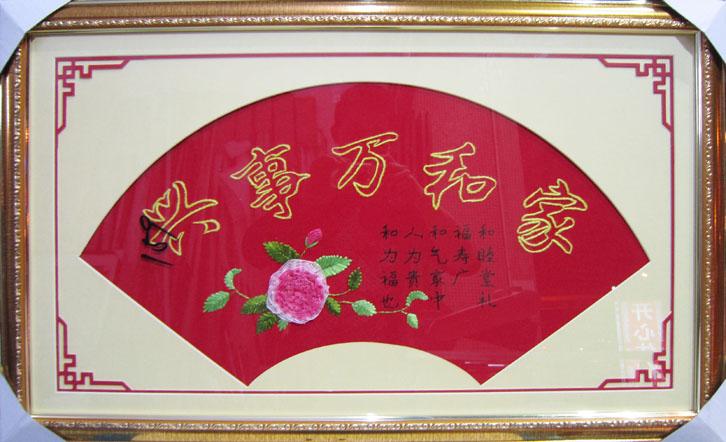 家和万事兴
和睦堂礼
福寿广
和气家中
人为贵
和为福也
开心